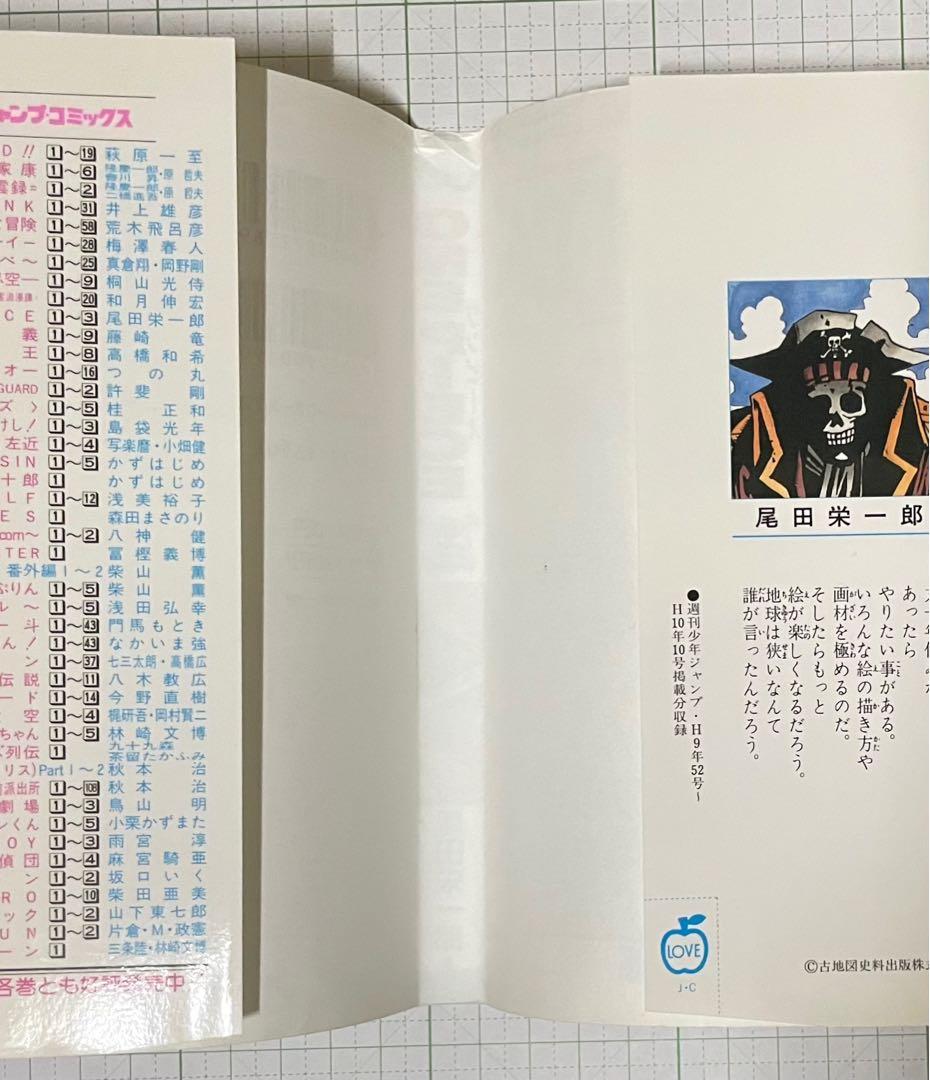 ャンプ・コミックス
D!! 1～19 萩原一至
家康 1～6 隆慶一郎・原哲夫
雲録= 1～2 隆慶一郎・原哲夫 二橋進吾
NK 1～31 井上雄彦
冒険 1～58 荒木飛呂彦
ーイー 1～28 梅澤春人
べ～ 1～25 真倉翔・岡野剛
空― 1～9 桐山光侍
1～20 和月伸宏
CE 1～3 尾田栄一郎
義 1～9 藤崎竜
王 1～8 高橋和希
オー 1～16 つの丸
GUARD 1～2 許斐剛
ズ〉 1～5 桂正和
けし! 1～3 島袋光年
左近 1～4 写楽麿・小畑健
SIN 1～5 かずはじめ
十郎 1 かずはじめ
LF 1～12 浅美裕子
ES 1 森田まさのり
oom～ 1～2 八神健
TER 1 冨樫義博
番外編1～2 柴山薫
ぷりん 1～5 柴山薫
ル～ 1～5 浅田弘幸
一斗 1～43 門馬もとき
ん! 1～43 なかいま強
ン 1～37 七三太朗・高橋広
伝説 1～11 八木教広
ード 1～14 今野直樹
空 1～4 梶研吾・岡村賢二
ちゃん 1～5 林崎文博
列伝 1 九十九森 茶留たかふみ
リス)Part1～2 秋本治
派出所 1～108 秋本治
劇場 1～3 鳥山明
ンくん 1～5 小栗かずまた
OY 1～3 雨宮淳
偵団 1～4 麻宮騎亜
ン 1～2 坂口いく
RO 1～10 柴田亜美
ック 1～2 山下東七郎
UN 1～2 片倉・M・政憲
ーン 1 三条陸・林崎文博
各巻とも好評発売中
尾田栄一郎
あったら
やりたい事がある。
いろんな絵の描き方や
画材を極めるのだ。
そしたらもっと
絵が楽しくなるだろう。
地球は狭いなんて
誰が言ったんだろう。
●週刊少年ジャンプ・H9年52号～
H10年10号掲載分収録
LOVE
J・C
©古地図史料出版株式